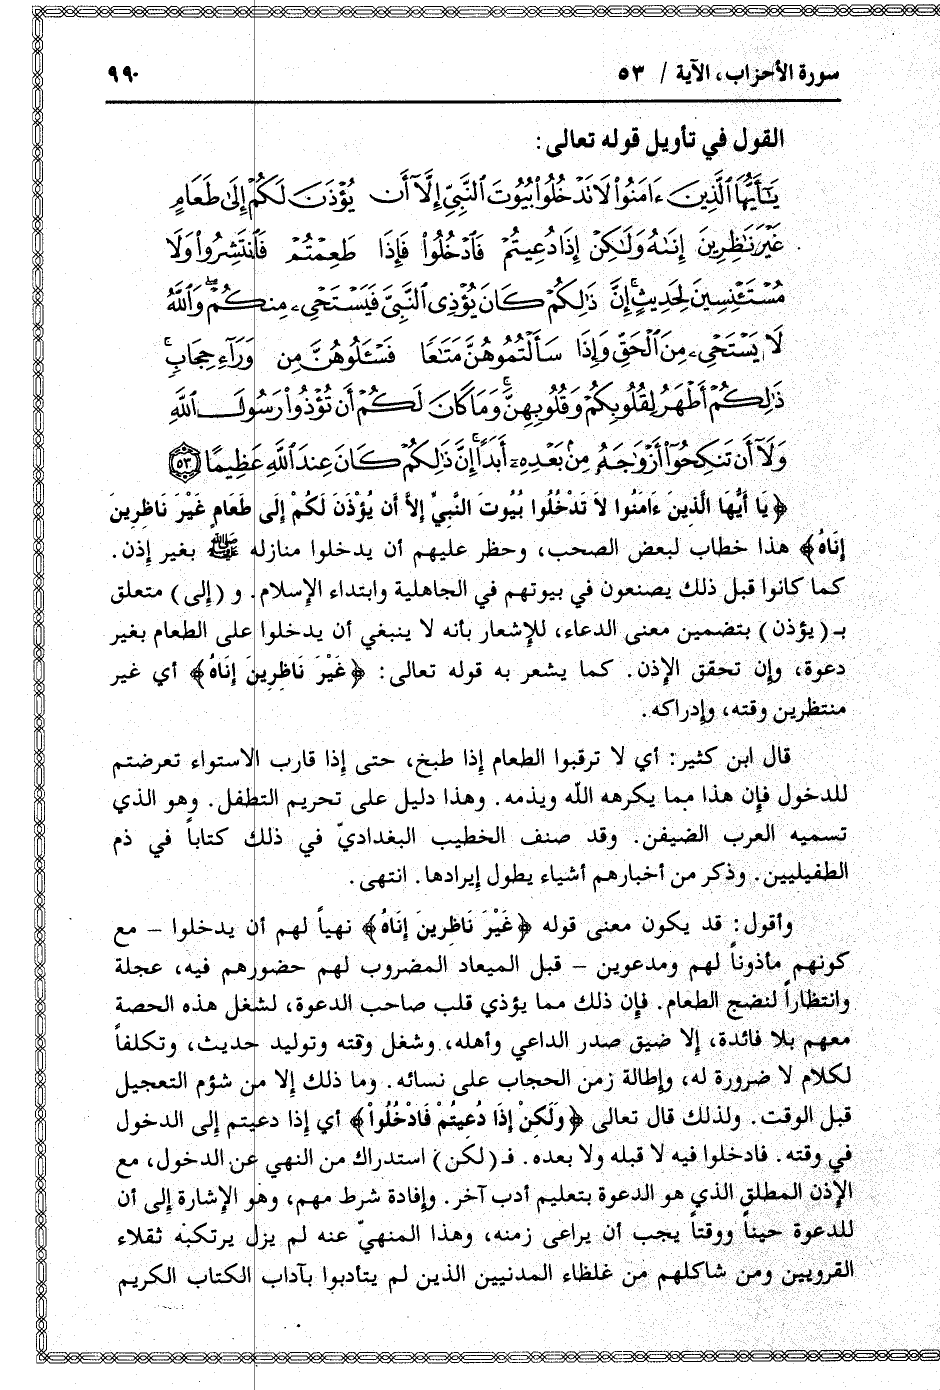 سورة الأحزاب، الآية / ٥٣
٩٩٠
القول في تأويل قوله تعالى:
يَٰٓأَيُّهَا ٱلَّذِينَ ءَامَنُوا۟ لَا تَدْخُلُوا۟ بُيُوتَ ٱلنَّبِيِّ إِلَّآ أَن يُؤْذَنَ لَكُمْ إِلَىٰ طَعَامٍ
غَيْرَ نَٰظِرِينَ إِنَىٰهُ وَلَٰكِنْ إِذَا دُعِيتُمْ فَٱدْخُلُوا۟ فَإِذَا طَعِمْتُمْ فَٱنتَشِرُوا۟ وَلَا
مُسْتَـْٔنِسِينَ لِحَدِيثٍ ۚ إِنَّ ذَٰلِكُمْ كَانَ يُؤْذِى ٱلنَّبِيَّ فَيَسْتَحْىِۦ مِنكُمْ ۖ وَٱللَّهُ
لَا يَسْتَحْىِۦ مِنَ ٱلْحَقِّ ۚ وَإِذَا سَأَلْتُمُوهُنَّ مَتَٰعًا فَسْـَٔلُوهُنَّ مِن وَرَآءِ حِجَابٍ ۚ
ذَٰلِكُمْ أَطْهَرُ لِقُلُوبِكُمْ وَقُلُوبِهِنَّ ۚ وَمَا كَانَ لَكُمْ أَن تُؤْذُوا۟ رَسُولَ ٱللَّهِ
وَلَآ أَن تَنكِحُوٓا۟ أَزْوَٰجَهُۥ مِنۢ بَعْدِهِۦٓ أَبَدًا ۚ إِنَّ ذَٰلِكُمْ كَانَ عِندَ ٱللَّهِ عَظِيمًا ٥٣
﴿يَا أَيُّهَا الَّذِينَ ءَامَنُوا لاَ تَدْخُلُوا بُيُوتَ النَّبِيِّ إِلاَّ أَن يُؤْذَنَ لَكُمْ إِلَى طَعَامٍ غَيْرَ نَاظِرِينَ
إِنَاهُ﴾ هذا خطاب لبعض الصحب، وحظر عليهم أن يدخلوا منازله ﷺ بغير إذن.
كما كانوا قبل ذلك يصنعون في بيوتهم في الجاهلية وابتداء الإسلام. و (إلى) متعلق
بـ (يؤذن) بتضمين معنى الدعاء، للإشعار بأنه لا ينبغي أن يدخلوا على الطعام بغير
دعوة، وإن تحقق الإذن. كما يشعر به قوله تعالى: ﴿غَيْرَ نَاظِرِينَ إِنَاهُ﴾ أي غير
منتظرين وقته، وإدراكه.
قال ابن كثير: أي لا ترقبوا الطعام إذا طبخ، حتى إذا قارب الاستواء تعرضتم
للدخول فإن هذا مما يكرهه الله ويذمه. وهذا دليل على تحريم التطفل. وهو الذي
تسميه العرب الضيفن. وقد صنف الخطيب البغداديّ في ذلك كتاباً في ذم
الطفيليين. وذكر من أخبارهم أشياء يطول إيرادها. انتهى.
وأقول: قد يكون معنى قوله ﴿غَيْرَ نَاظِرِينَ إِنَاهُ﴾ نهياً لهم أن يدخلوا – مع
كونهم مأذوناً لهم ومدعوين – قبل الميعاد المضروب لهم حضورهم فيه، عجلة
وانتظاراً لنضج الطعام. فإن ذلك مما يؤذي قلب صاحب الدعوة، لشغل هذه الحصة
معهم بلا فائدة، إلا ضيق صدر الداعي وأهله، وشغل وقته وتوليد حديث، وتكلفاً
لكلام لا ضرورة له، وإطالة زمن الحجاب على نسائه. وما ذلك إلا من شؤم التعجيل
قبل الوقت. ولذلك قال تعالى ﴿وَلَكِنْ إِذَا دُعِيتُمْ فَادْخُلُواْ﴾ أي إذا دعيتم إلى الدخول
في وقته. فادخلوا فيه لا قبله ولا بعده. فـ (لكن) استدراك من النهي عن الدخول، مع
الإذن المطلق الذي هو الدعوة بتعليم أدب آخر. وإفادة شرط مهم، وهو الإشارة إلى أن
للدعوة حيناً ووقتاً يجب أن يراعى زمنه، وهذا المنهيّ عنه لم يزل يرتكبه ثقلاء
القرويين ومن شاكلهم من غلظاء المدنيين الذين لم يتأدبوا بآداب الكتاب الكريم